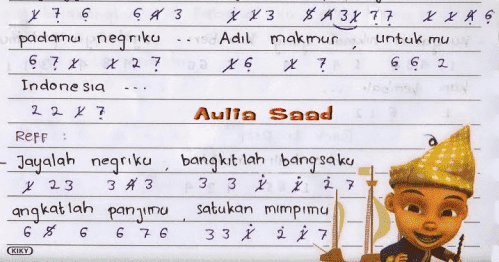 1̸ 7̣ 6̣ 6̣ 4̸ 3 1̸ 1̸ 3 5̸ 4̸ 3 1̸ 7̣ 7̣ 1̸ 1̸ 4̸ 6̣
padamu negriku .. Adil makmur, untukmu
6̣ 7̣ 1̸ 1̸ 2 7̣ 1̸ 6̣ 1̸ 7̣ 6̣ 6̣ 2
Indonesia ...
2 2 1̸ 7̣
Aulia Saad
Reff :
- Jayalah negriku, bangkitlah bangsaku
1̸ 2 3 3 4̸ 3 3 3 1̸̇ 1̸̇ 2̇ 7
angkatlah panjimu, satukan mimpimu
6 5̸ 6 6 7 6 3 3 1̸̇ 2̇ 1̸̇ 7
KIKY